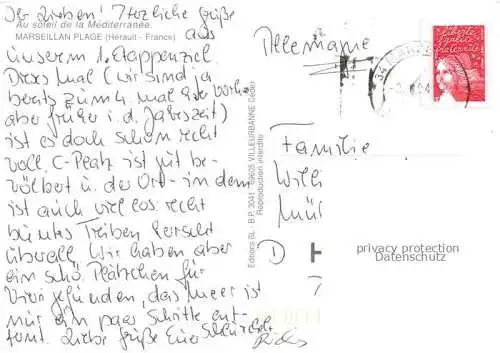 Ihr Lieben! Herzliche Grüße
Au soleil de la Méditerranée.
aus
MARSEILLAN PLAGE (Hérault - France)
unserm 1. Etappenziel.
Dieses Mal (wir sind ja
bereits zum 4. mal hier vorher
aber früher i. d. Jahreszeit)
ist es doch schon recht
voll. C-Platz ist gut be-
völkert u. der Ort - in dem
ist auch viel los: recht
buntes Treiben herrscht
überall. Wir haben aber
ein schö. Plätzchen für
vier gefunden, das Meer ist
nur ein paar Schritte ent-
fernt. Liebe Grüße Eure
Editions SL - B.P. 3041 - 69605 VILLEURBANNE Cedex
Reproduction interdite
Allemagne
34 MARSE
liberté
égalité
fraternité
Familie
Willi
Mül
D
privacy protection
Datenschutz